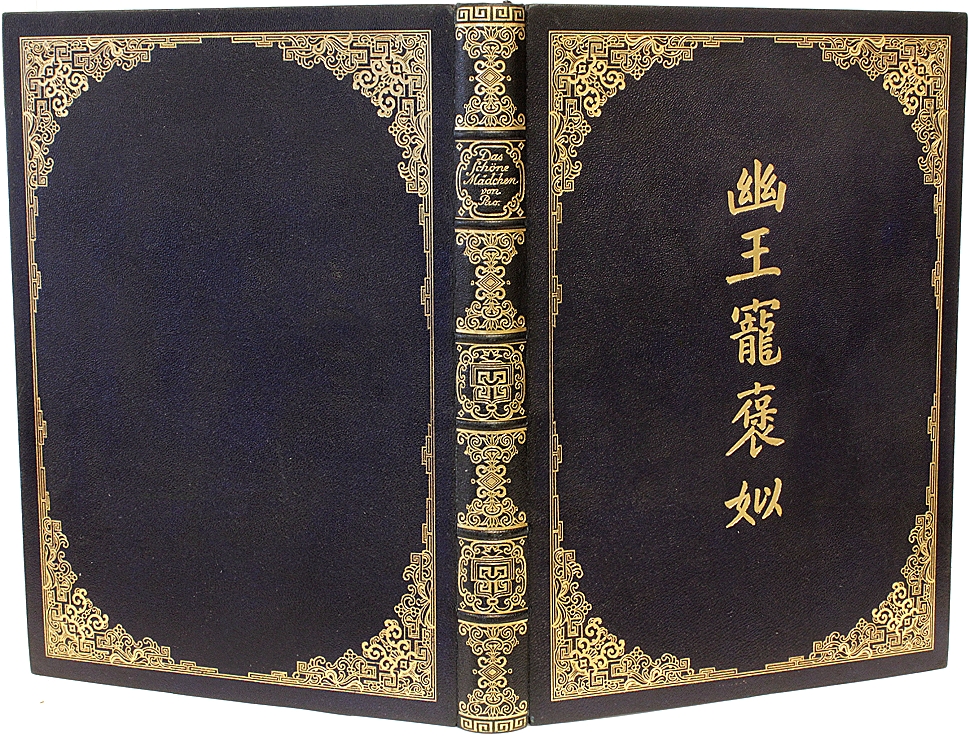 Das
Schöne
Mädchen
von
Pao.
幽王寵褒姒